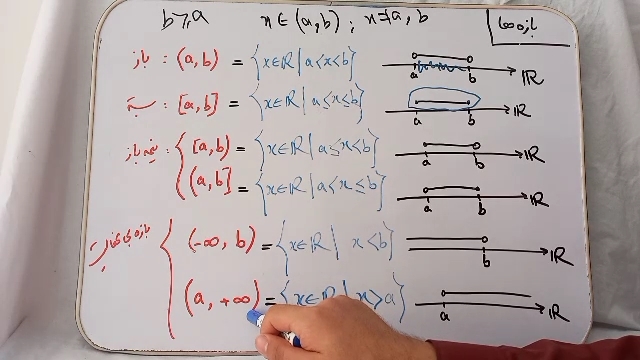 b⩾a    x∈(a,b) ; x≠a,b    بازه‌ها
باز : (a,b) = {x∈ℝ | a<x<b}    a b ℝ
بسته : [a,b] = {x∈ℝ | a≤x≤b}    a b ℝ
نیمه باز : { [a,b) = {x∈ℝ | a≤x<b}    a b ℝ
(a,b] = {x∈ℝ | a<x≤b}    a b ℝ
{ (-∞,b) = {x∈ℝ | x<b}    b ℝ
(a,+∞) = {x∈ℝ | x>a}    a ℝ